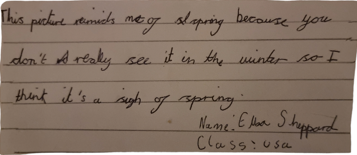 This picture reminds me of spring because you
don't really see it in the winter so I
think it's a sigh of spring.
Name: Ella Sheppard
Class: usa